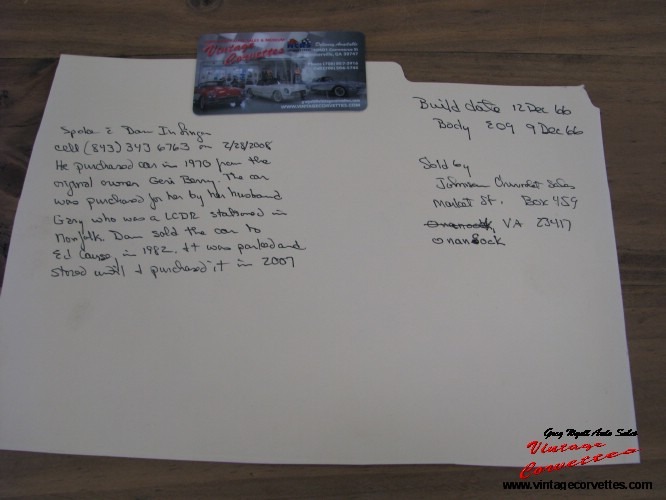 Vintage
Corvettes
WWW.VINTAGECORVETTES.COM
Build date 12 Dec 66
Body E09 9 Dec 66
Spoke E Dan
cell (843) 343 6763 on 2/28/2008
He purchased car in 1970 from the
orginal owner Geri Berry. The car
was purchased for her by her husband
Gary who was a LCDR stationed in
Norfolk. Dan sold the car to
Ed in 1982. It was parked and
stored until I purchased it in 2007
Sold by
Johnson Chevrolet Sales
Market St. Box 459
Onanock, VA 23417
onancock
Greg Wyatt Auto Sales
Vintage
Corvettes
www.vintagecorvettes.com